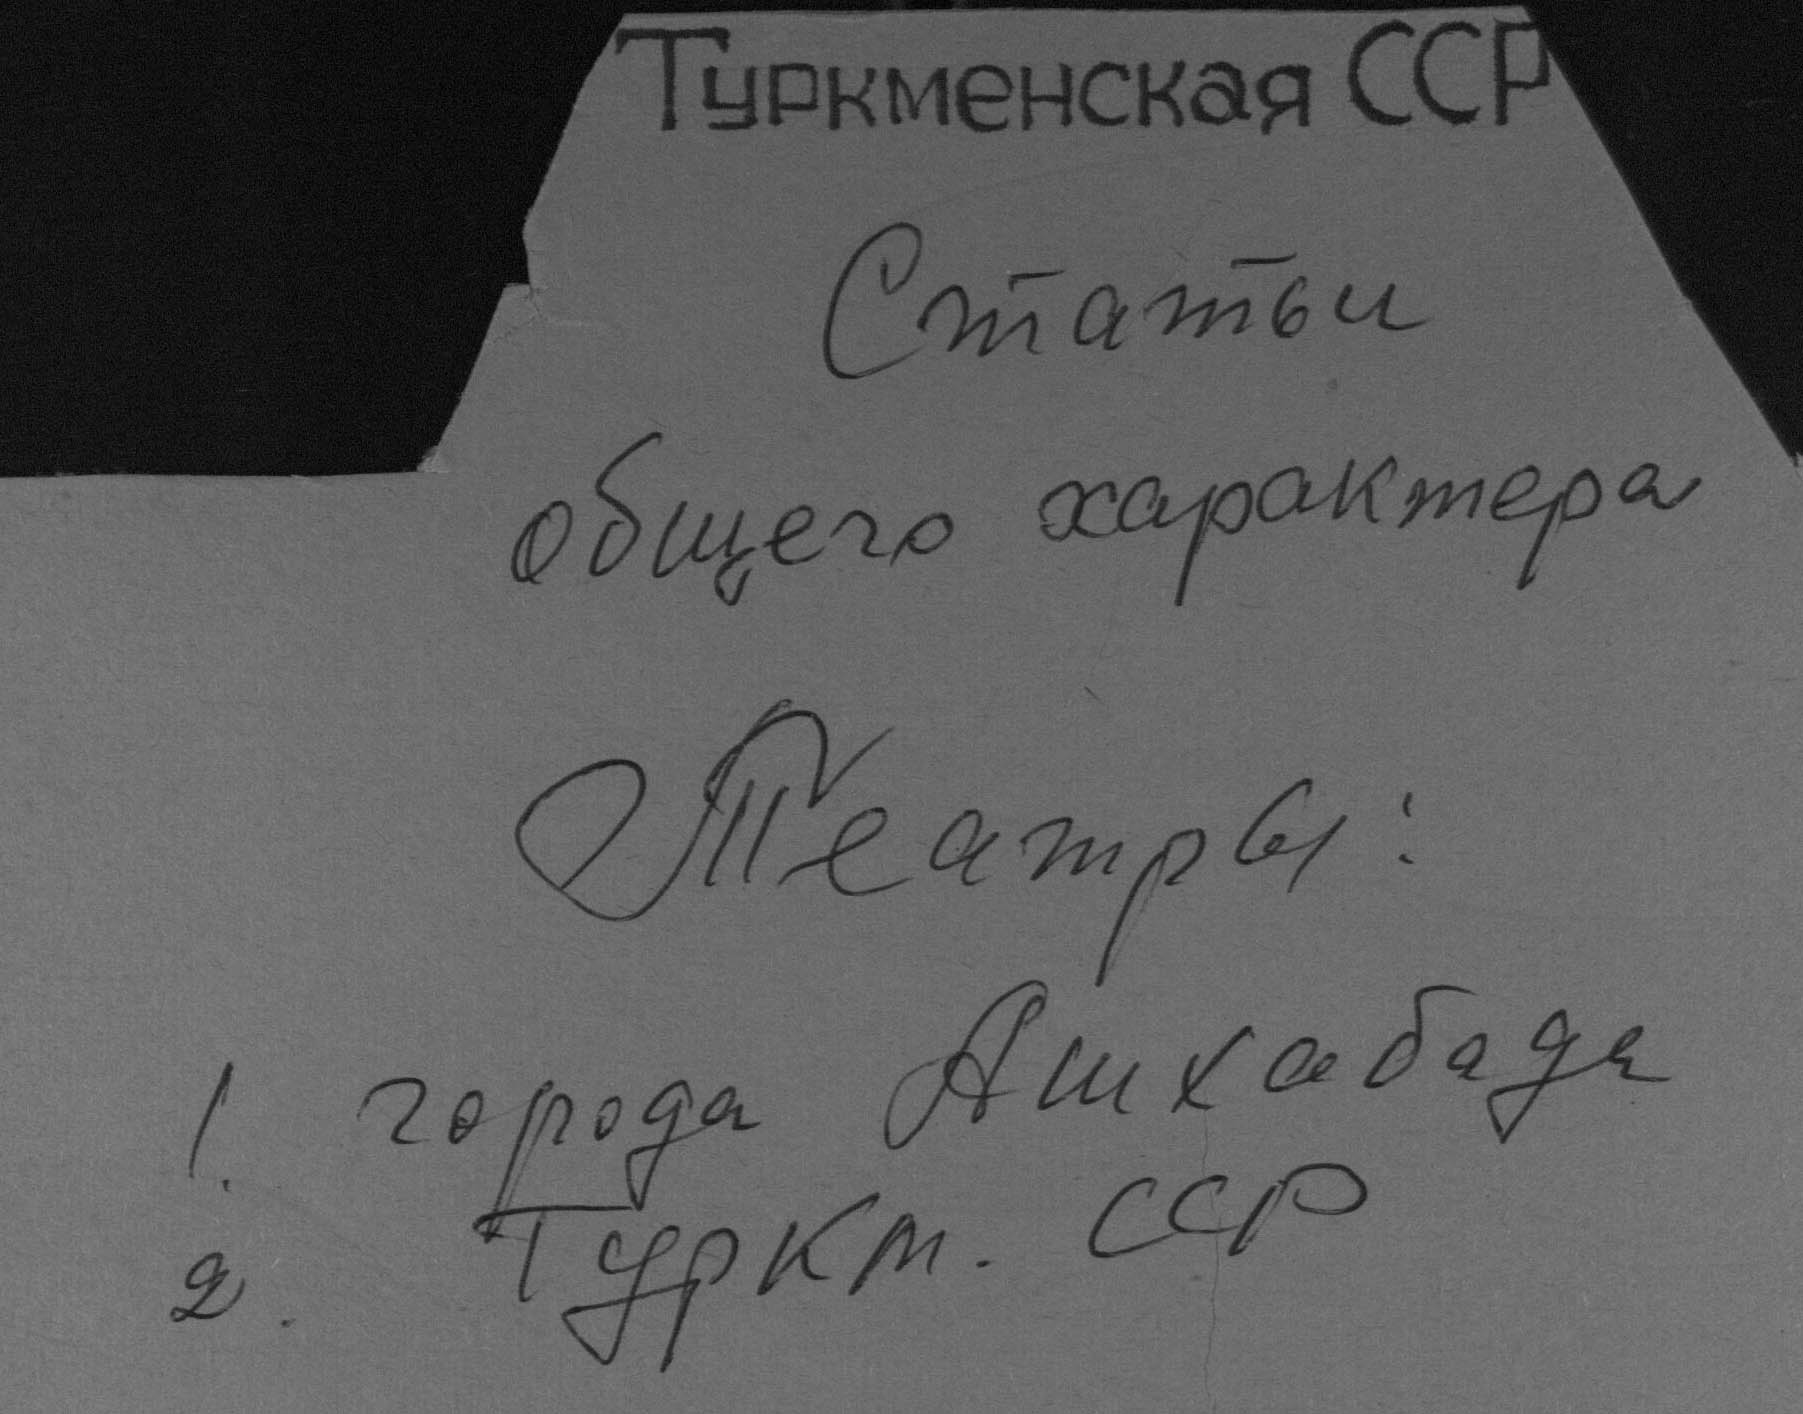 Туркменская ССР
Статьи
общего характера
Театры:
1. города Ашхабада
2. Туркм. ССР